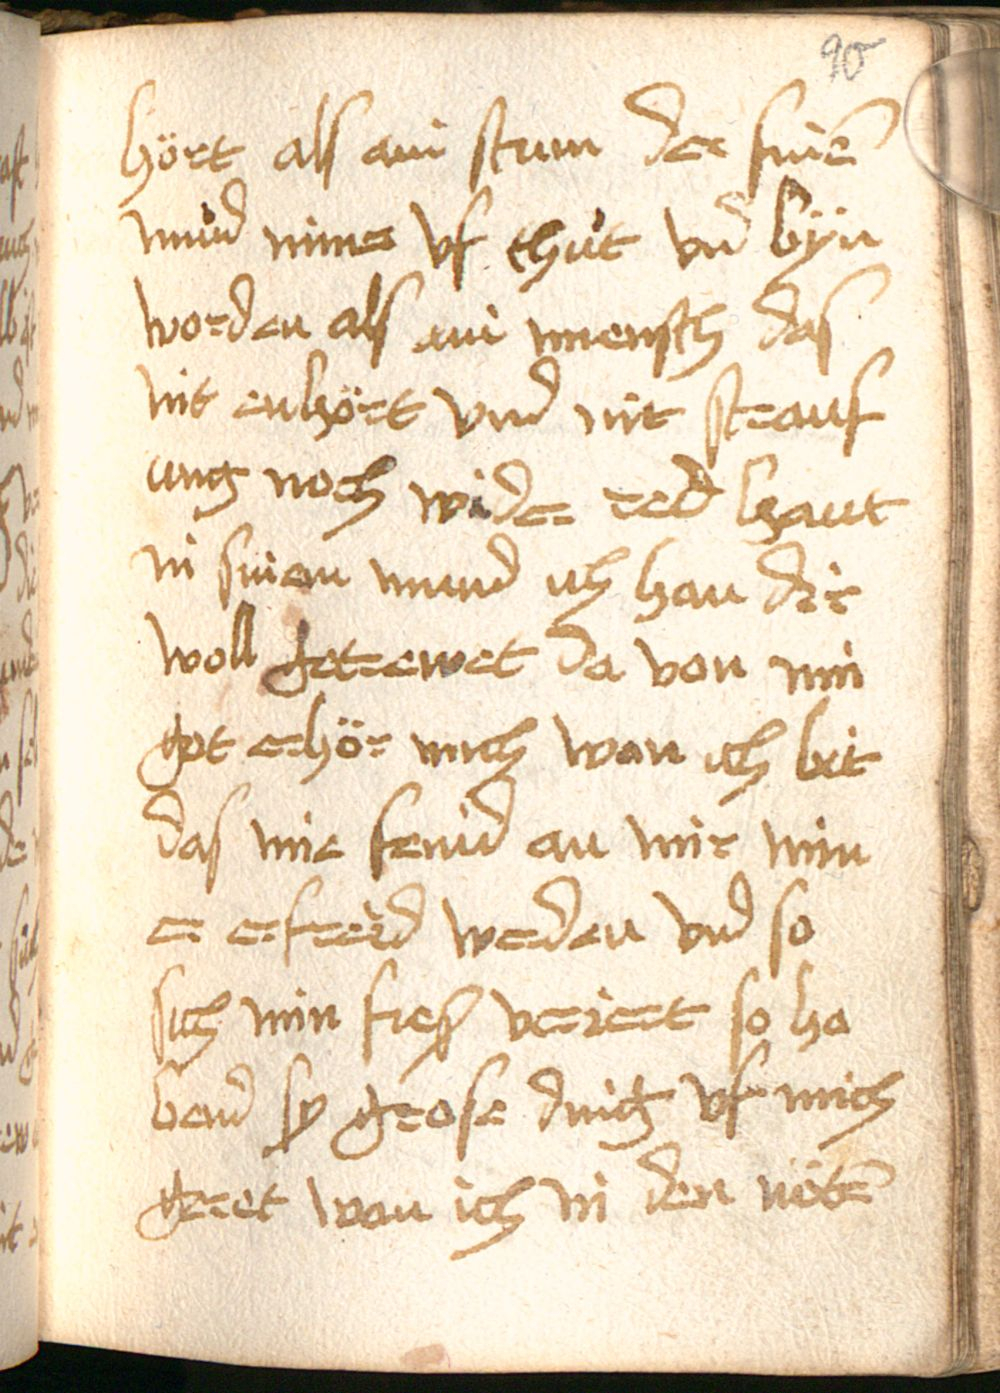 90
hört als ain stum der sinē
mu̇nd nimer vf thu̇t vnd byn
worden als ain mensch das
nit enhört vnd nit strauf
ung noch wider red haut
in sinen mund ich han dir
woll getrewet da von min
got erhör mich wan ich bit
das mir feind an mir nim
er erfreid werden vnd so
sich min fieß verirret so ha
bend sy grose ding vf mich
geret wan ich in den nötē